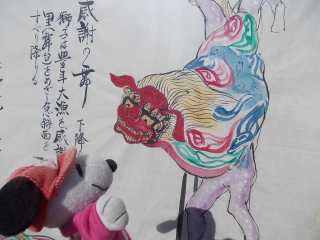 感謝の舞 下降
獅子は豊年大漁を感謝
里(舞台)をめざし急斜面を
すべり降りる